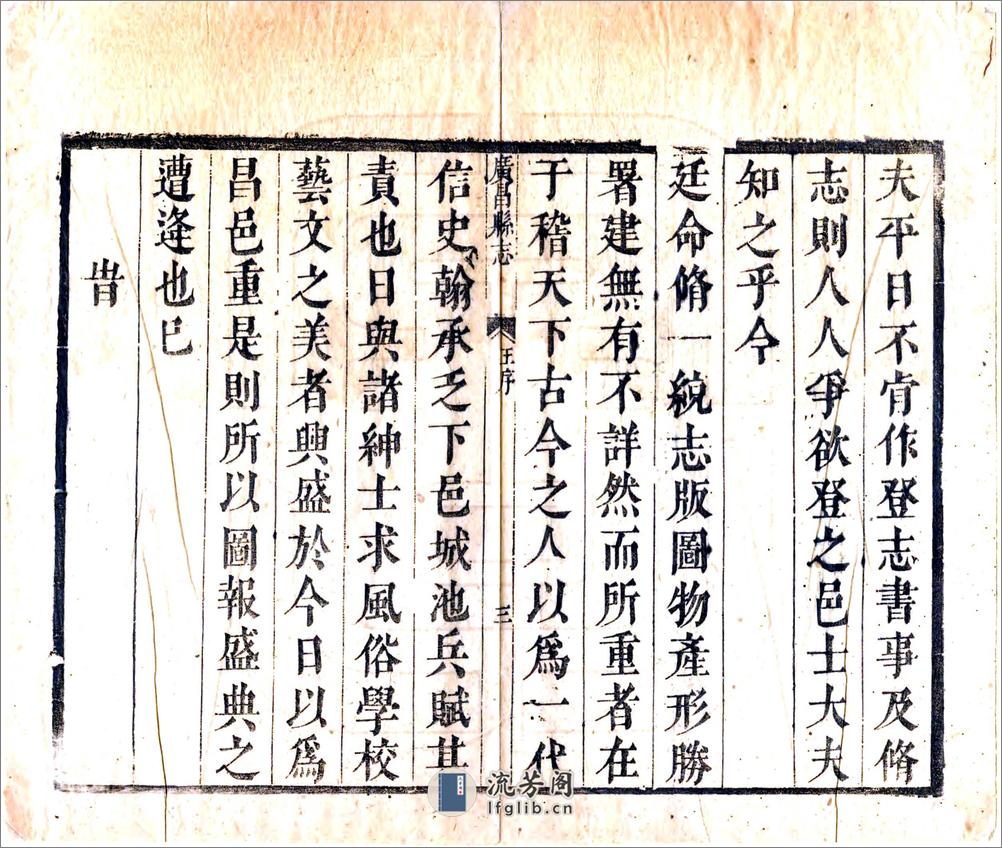 夫平日不肯作登志書事及脩
志則人人爭欲登之邑士大夫
知之乎今
廷命脩一統志版圖物產形勝
署建無有不詳然而所重者在
于稽天下古今之人以爲一代
廣昌縣志
王序
三
信史翰承乏下邑城池兵賦其
責也日與諸紳士求風俗學校
藝文之美者興盛於今日以爲
昌邑重是則所以圖報盛典之
遭逢也巳
旹
流芳阁
lfglib.cn